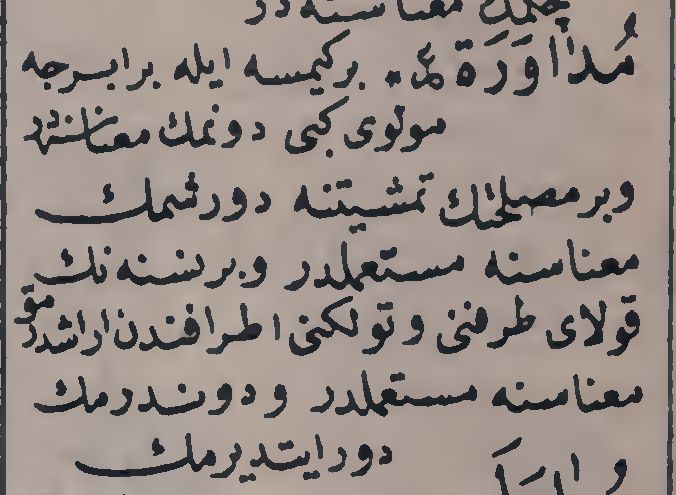 چكمك معناسنه در
مُدَاوَرَة ع. بركيمسه ايله برابرجه
مولوى كبى دونمك معناسنه در
وبر مصلحتك تمشيتنه دورشمك
معناسنه مستعملدر وبر نسنه نك
قولاى طرفنى وتولكنى اطرافندن اراشدرمق
معناسنه مستعملدر ودوندرمك
دور ايتديرمك